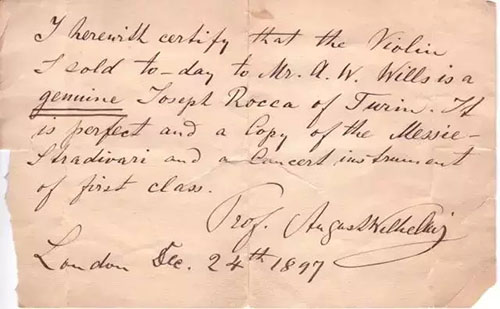 I herewith certify that the Violin
I sold to-day to Mr. A. W. Wills is a
genuine Joseph Rocca of Turin. It
is perfect and a Copy of the Messie-
Stradivari and a Concert instrument
of first class.
Prof. August Wilhelmj
London Dec. 24th 1897